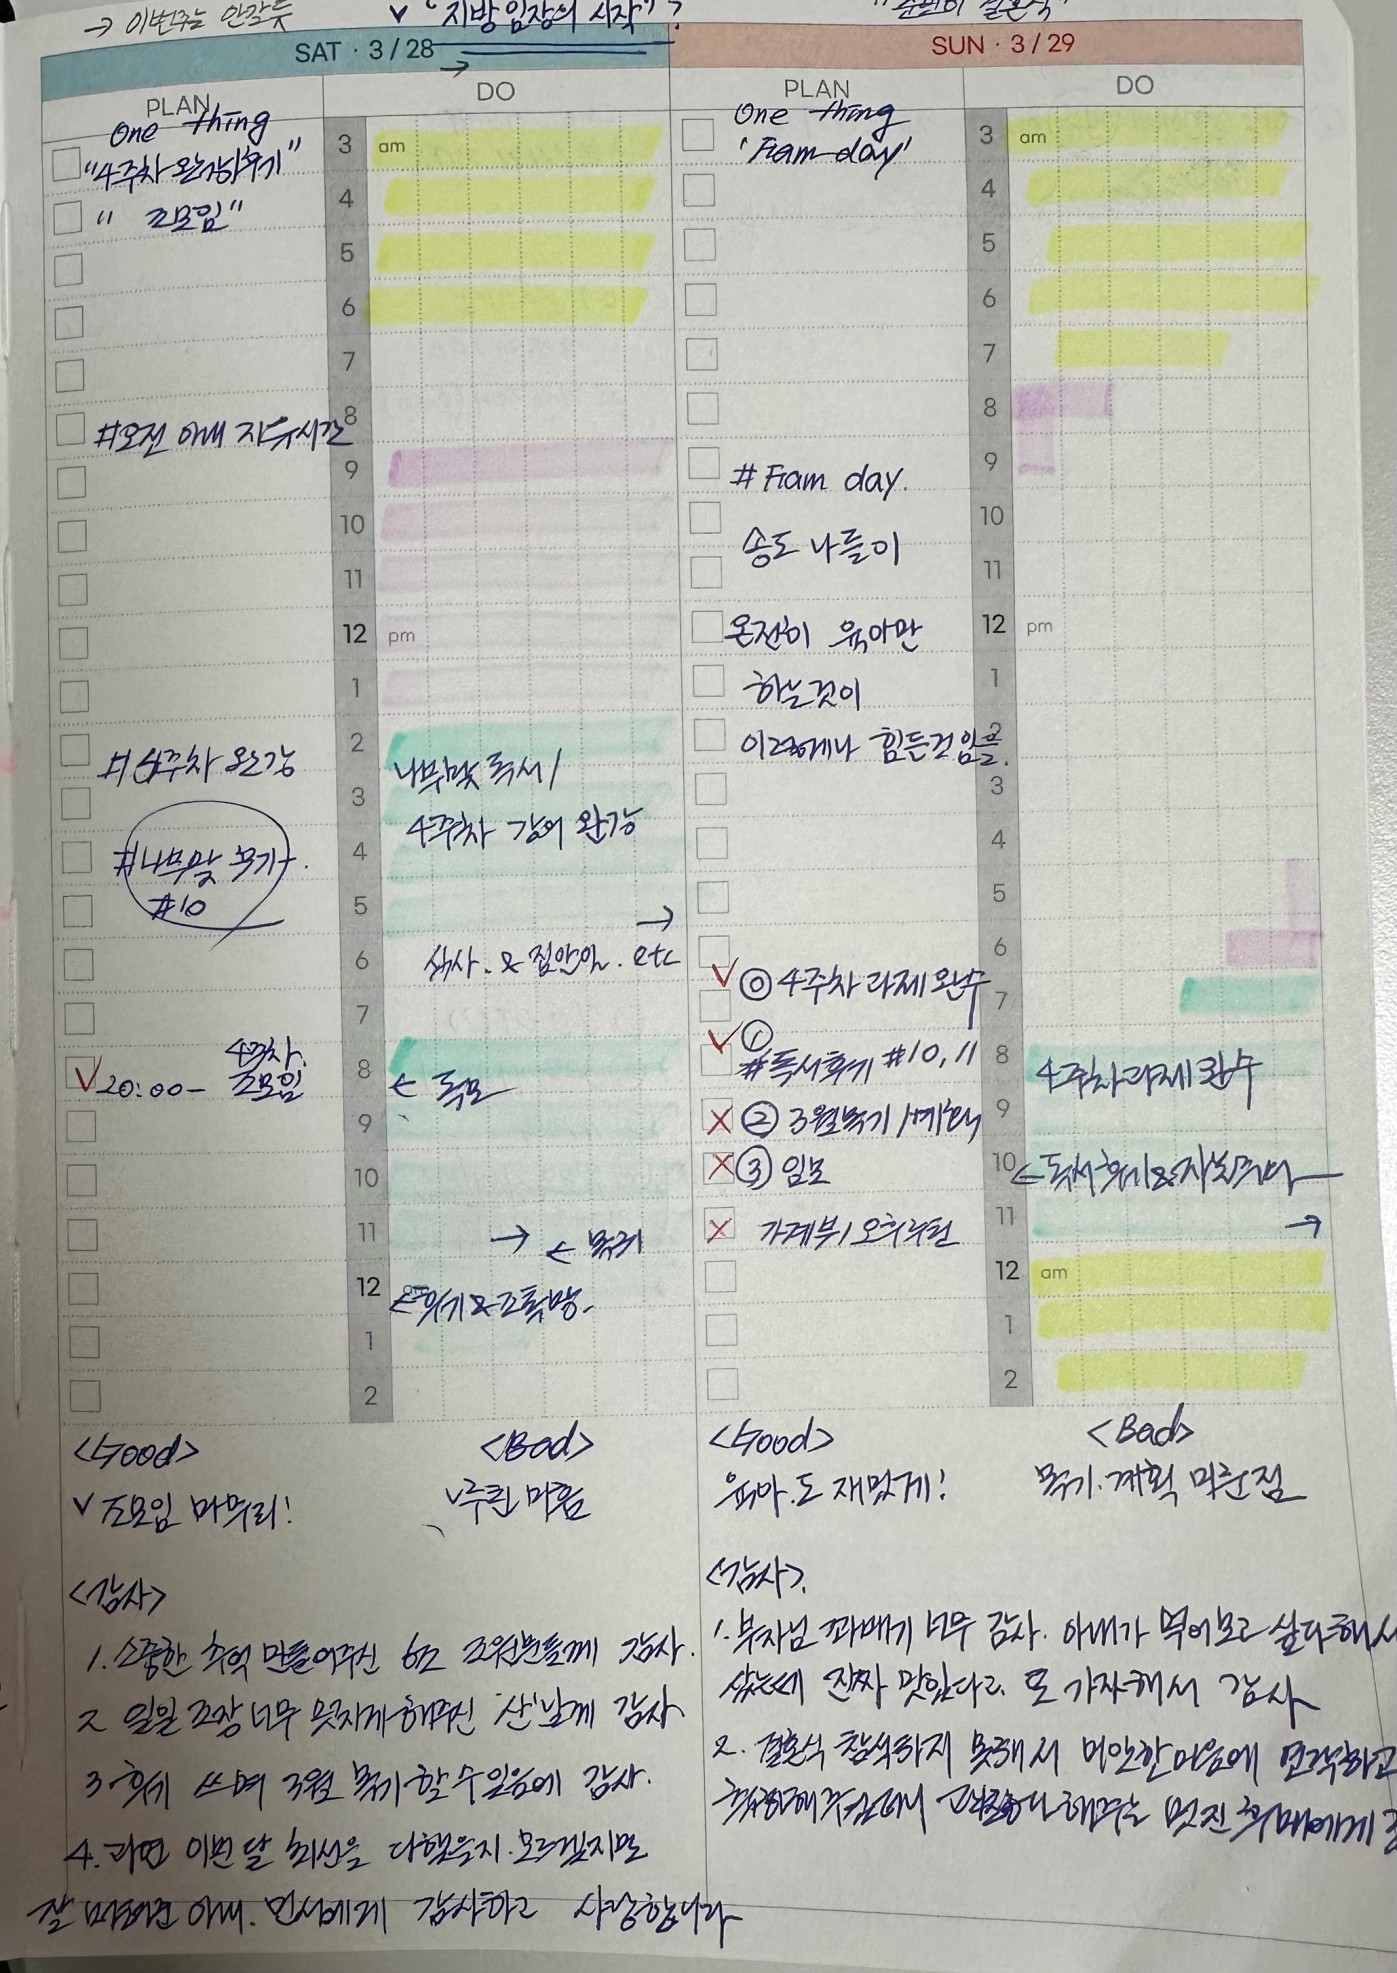 → 이번주는 안갈듯
v "지방임장의 시작"?
결혼식"
SAT · 3/28
PLAN
DO
One thing
"4주차 완강&후기"
" 조모임"
#오전 아내 자유시간
#4주차 완강
#나부맞 복기.
#10
4주차
20:00- 조모임
3 am
4
5
6
7
8
9
10
11
12 pm
1
2
3
4
5
6
7
8
9
10
11
12 am
1
2
나부맞 독서/
4주차 강의 완강
→
식사. & 집안일. etc
← 독모
→ ← 복기
←후기&조톡방.
<Good>
v 조모임 마무리!
<Bad>
v루틴 미흡
<감사>
1. 소중한 추억 만들어주신 6조 조원분들께 감사.
2 일일 조장 너무 멋지게 해주신 '산'님께 감사
3 후기 쓰며 3월 복기 할 수 있음에 감사.
4. 과연 이번 달 최선을 다했을지. 모르겠지만
잘 버텨준 아내. 민서에게 감사하고 사랑합니다
SUN · 3/29
PLAN
DO
One thing
'Fam day'
# Fam day.
송도 나들이
온전히 육아만
하는것이
이렇게나 힘든건임을.
⓪ 4주차 과제 완수
①
#독서후기 #10, 11
② 3월복기/계획
③ 임보
가계부/오후루틴
3 am
4
5
6
7
8
9
10
11
12 pm
1
2
3
4
5
6
7
8
9
10
11
12 am
1
2
4주차과제 완수
←독서후기&
→
<Good>
육아.도 재밌게!
<Bad>
복기.계획 미룬점
<감사>.
1. 부자님 꽈배기 너무 감사. 아내가 먹어보고 싶다해서
샀는데 진짜 맛있다고 또 가자해서 감사
2. 결혼식 참석하지 못해서 미안한마음에 연락하고
해주는 멋진 후배에게